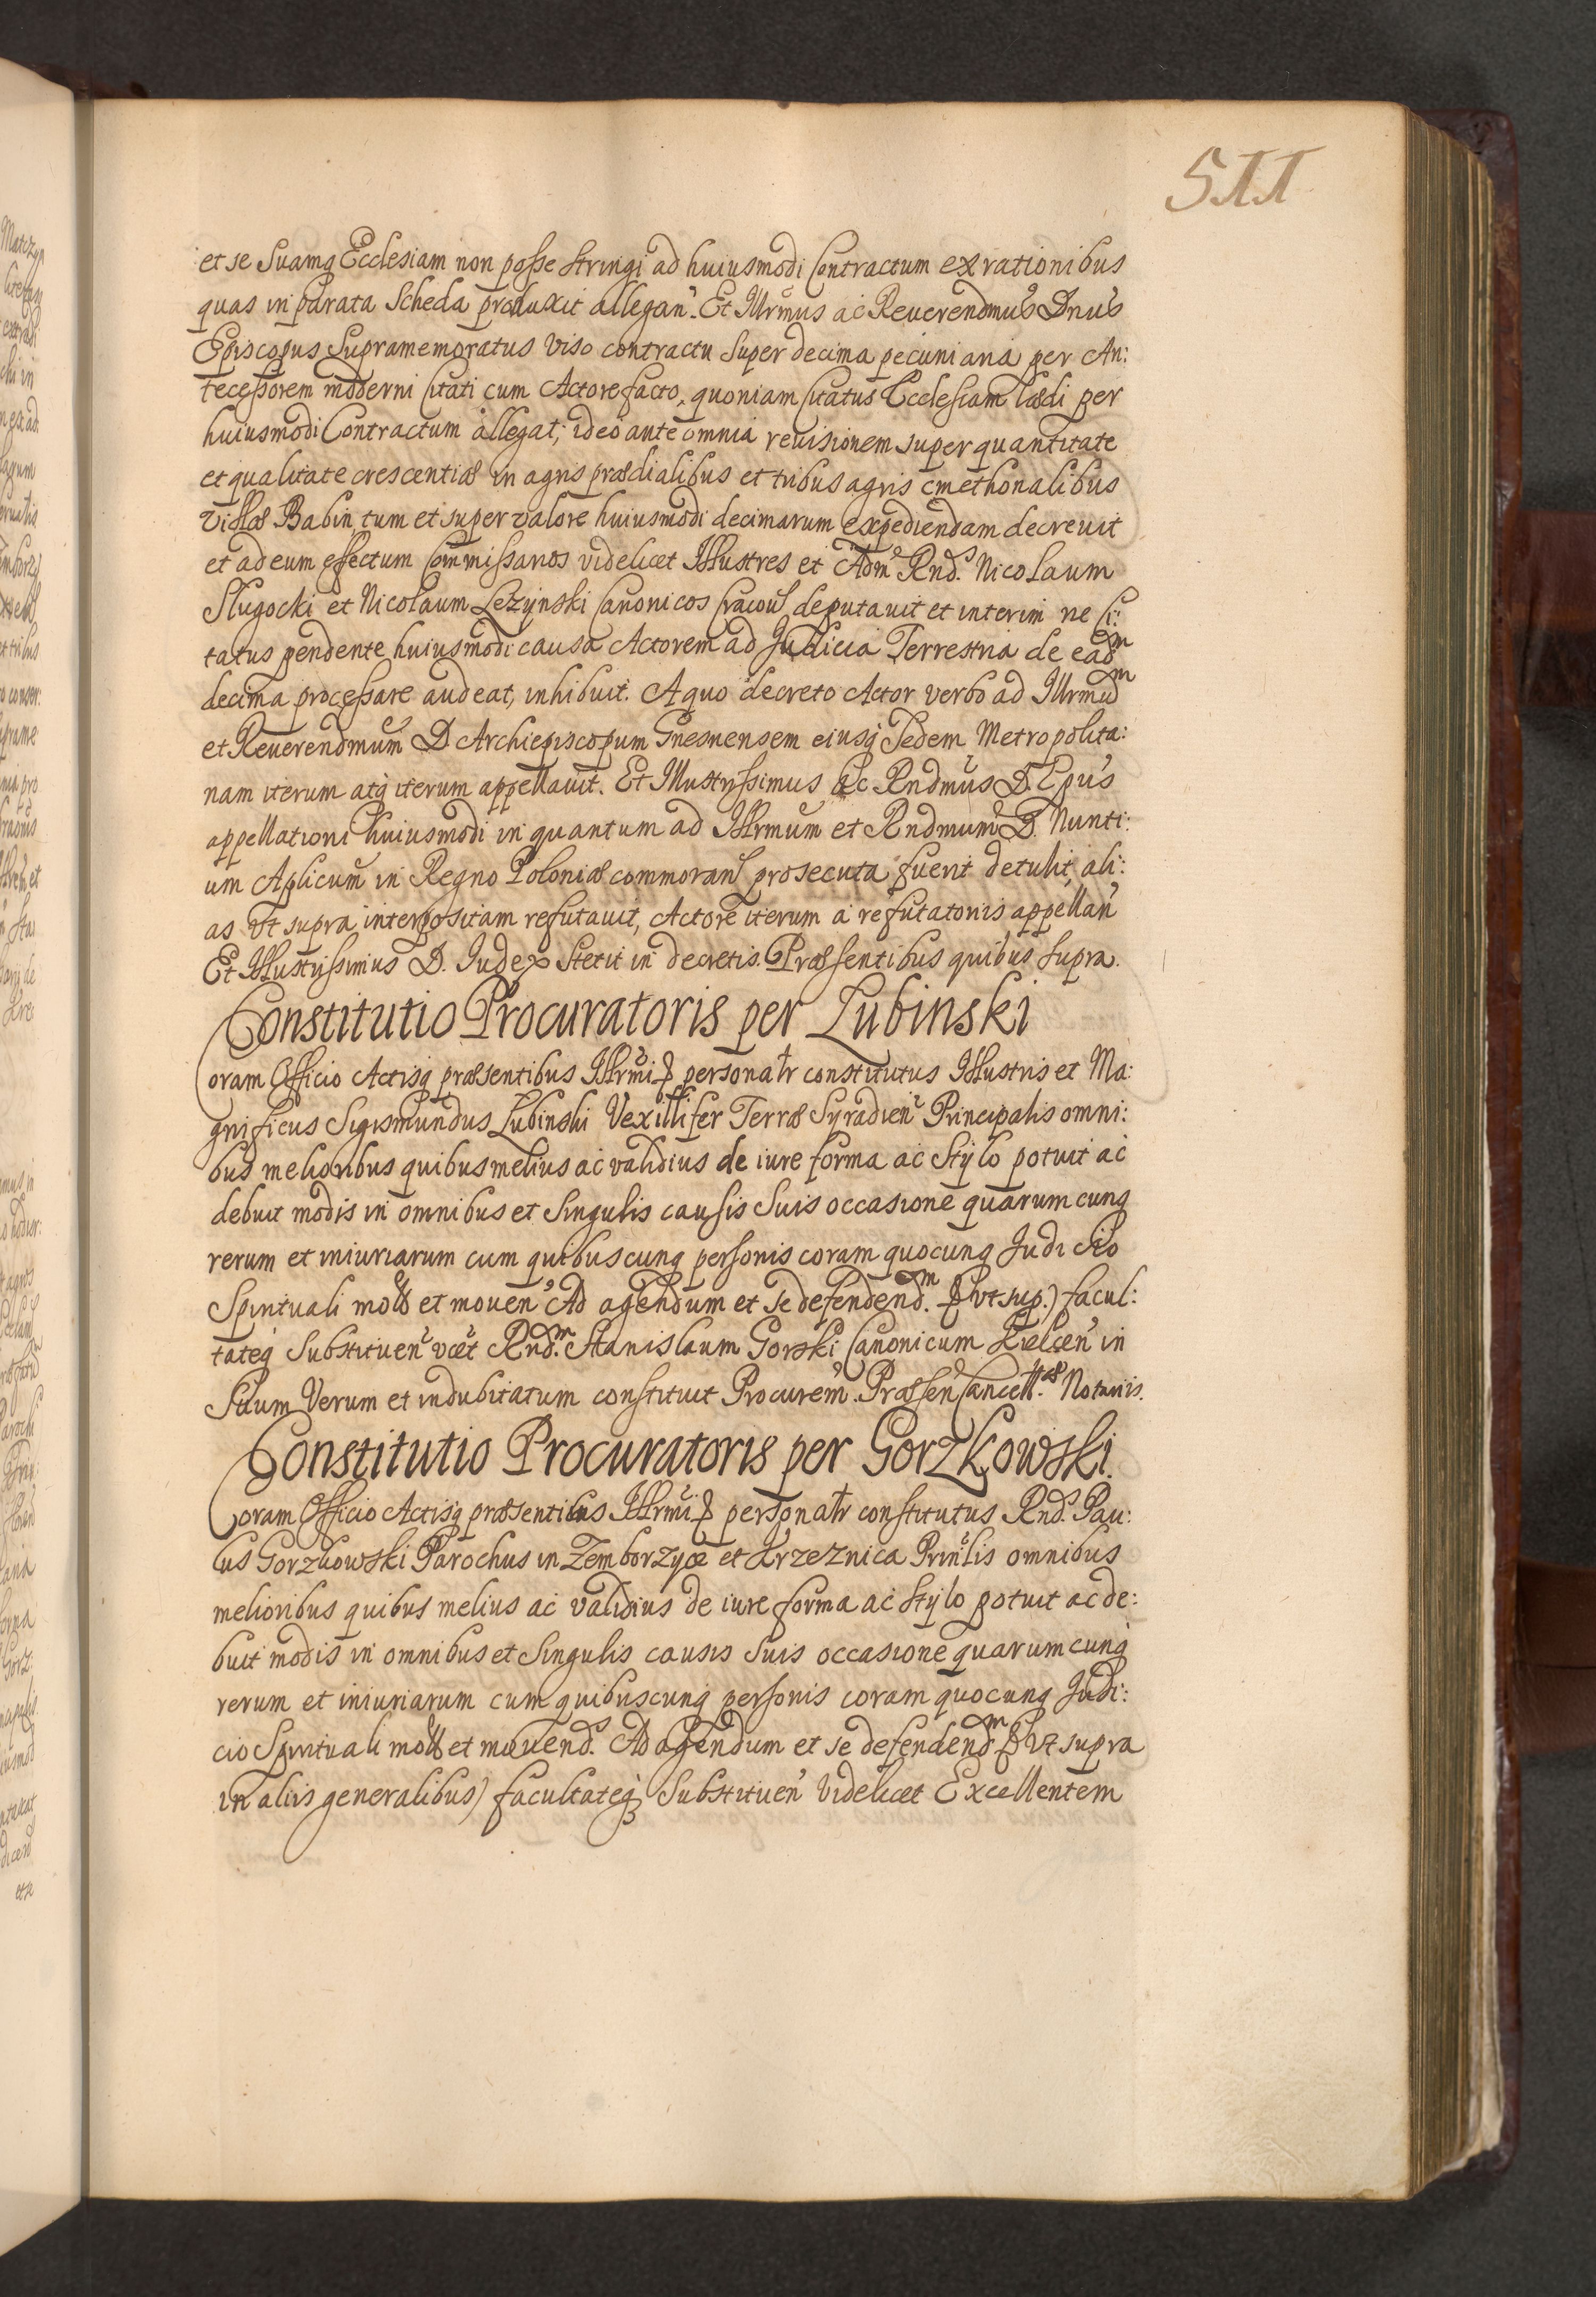 511
et se Suamq Ecclesiam non posse stringi ad huiusmodi Contractum ex rationibus
quas in parata Scheda produxit allegan. Et Illrmus ac Reverendmus Dnus
Episcopus Supramemoratus viso contractu super decima pecuniaria per An:
tecessorem moderni Citati cum Actore facto, quoniam Citatus Ecclesiam lædi per
huiusmodi Contractum allegat; ideo ante omnia revisionem super quantitate
et qualitate crescentiæ in agris prædialibus et tribus agris cmethonalibus
villæ Babin tum et super valore huiusmodi decimarum expediendam decrevit
et ad eum effectum Commissarios videlicet Illustres et Adm Rnd. Nicolaum
Slugocki et Nicolaum Lezynski Canonicos Cracov deputavit et interim ne Ci:
tatus pendente huiusmodi causa Actorem ad Judicia Terrestria de eadm
decima processare audeat, inhibuit. A quo decreto Actor verbo ad Illrmum
et Reverendmum D Archiepiscopum Gnesnensem eiusq Sedem Metropolita:
nam iterum atq iterum appellavit. Et Illustrissimus ac Rndmus D. Epus
appellationi huiusmodi in quantum ad Illrmum et Rndmum D. Nunti:
um Aplicum in Regno Poloniæ commoran prosecuta fuerit detulit, ali:
as vt supra interpositam refutavit, Actore iterum a refutatoriis appellan
Et Illustrissimus D. Iudex stetit in decretis. Præsentibus quibus supra.
Constitutio Procuratoris per Lubinski
Coram Officio Actisq præsentibus Illrmi &c personalr constitutus Illustris et Ma:
gnificus Sigismundus Lubinski Vexillifer Terræ Syradien Principalis omni:
bus melioribus quibus melius ac validius de iure forma ac Stylo potuit ac
debuit modis in omnibus et singulis causis suis occasione quarumcunq
rerum et iniuriarum cum quibuscunq personis coram quocunq Judicio
Spirituali motis et moven Ad agendum et se defendendm. &c vt sup.) facul:
tateq Substituen vcet Rndm. Stanislaum Gorski Canonicum Kielcen in
Suum Verum et indubitatum constituit Procurem. Præsen Cancell. Notariis.
Constitutio Procuratoris per Gorzkowski.
Coram Officio Actisq præsentibus Illrmi &c personalr constitutus Rnds. Pau:
lus Gorzkowski Parochus in Zemborzyce et Krzeznica Prinlis omnibus
melioribus quibus melius ac validius de iure forma ac Stylo potuit ac de:
buit modis in omnibus et singulis causis suis occasione quarumcunq
rerum et iniuriarum cum quibuscunq personis coram quocunq Judi:
cio Spirituali motis et movend. Ad agendum et se defendendm &c vt supra
in aliis generalibus) facultateq Substituen videlicet Excellentem